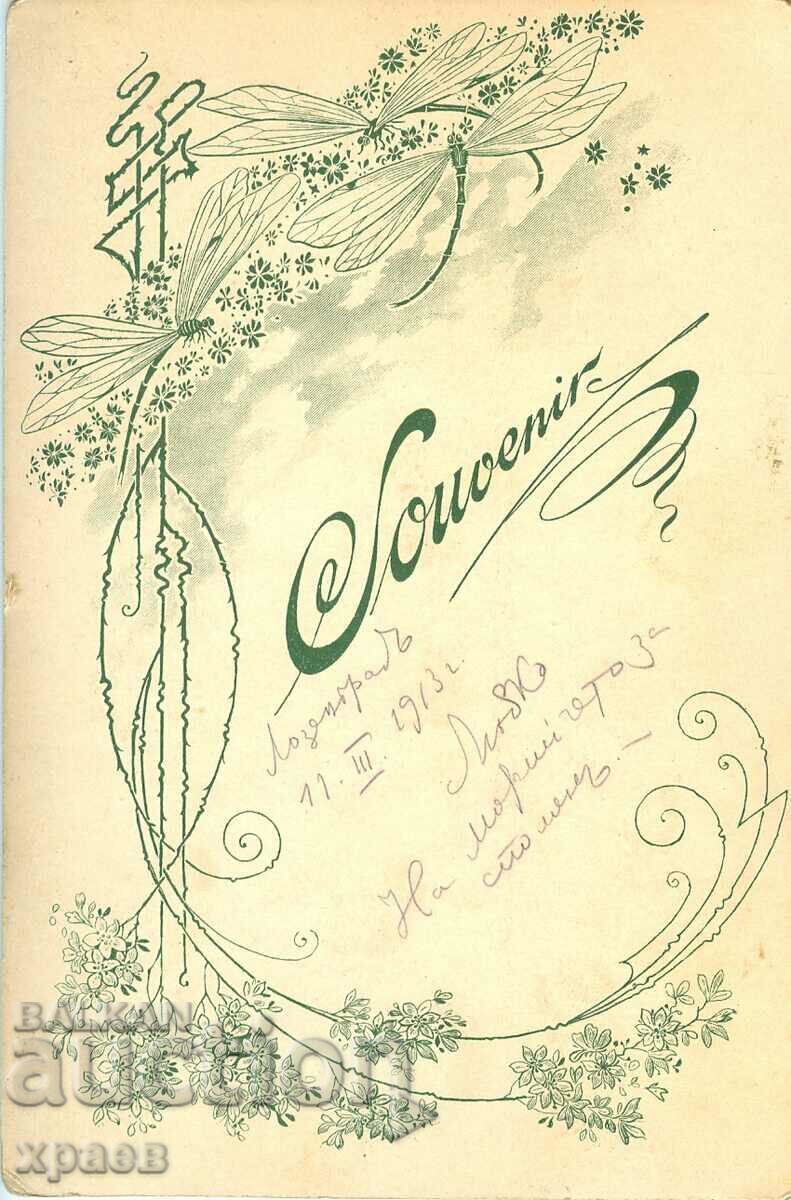 Souvenir
Лозенградъ
11. III. 1913 г.
Любк
На
столенъ. —
BALKAN
auction
храев